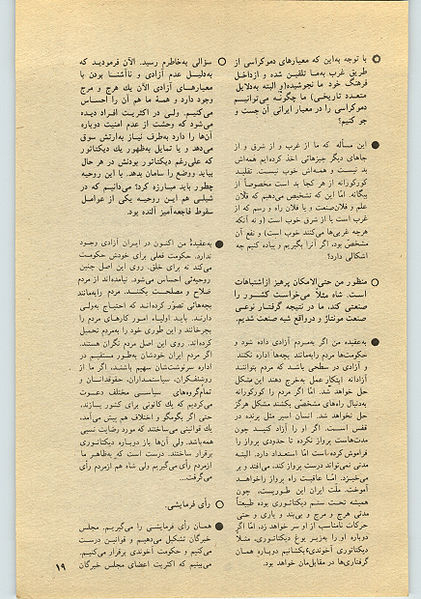 با توجه به‌این که معیارهای دموکراسی از
طریق غرب به‌ما تلقین شده و از‌داخل
فرهنگ خود ما نجوشیده(و البته به‌دلایل
متعدد تاریخی) ما چگونه می‌توانیم
دموکراسی را در معیار ایرانی آن جست و
جو کنیم؟
این مسأله که ما از غرب و از شرق و از
جاهای دیگر چیزهائی اخذ کرده‌ایم همه‌اش
بد نیست و همه‌اش خوب نیست. تقلید
کورکورانه از هر کجا بد است مخصوصاً از
بیگانه. امّا این که تشخیص می‌دهیم که فلان
علم و فلان‌صنعت و یا فلان راه و رسم که از
غرب است یا از شرق خوب است (و نه آنکه
هرچه غربی‌ها می‌کنند خوب است) و نفع آن
مشخص بود، اگر آنرا بگیریم و پیاده کنیم چه
اشکالی دارد؟
منظور من حتی‌الامکان پرهیز ازاشتباهات
است. شاه مثلاً می‌خواست کشور را
صنعتی کند، ما در نتیجه گرفتار نوعی
صنعت مونتاژ و در‌واقع شبه صنعت شدیم.
به‌عقیده من اگر به‌مردم آزادی داده شود و
حکومت‌ها مردم رابه‌مانند بچه‌ها اداره نکنند
و آزادی در سطحی باشد که مردم بتوانند
آزادانه ابتکار عمل به‌خرج دهند این‌مشکل
حل خواهد شد. امّا اگر مردم را کورکورانه
به‌دنبال راه‌های مشخصی بکشند مشکل هرگز
حل نخواهد شد. انسان اسیر مثل پرنده در
قفس است. اگر او را آزاد کنید چون
مدت‌هاست پرواز نکرده تا حدودی پرواز را
فراموش کرده‌است امّا استعداد دارد. البته
مدتی نمی‌تواند درست پرواز کند، می‌افتد و بر
می‌خیزد. امّا عاقبت راه پرواز راخواهد
آموخت. ملّت ایران این طوریست، چون
همیشه تحت ستم دیکتاتوری بوده طبیعتاً
مدتی هرج و مرج و بی‌بند و باری و حتی
حرکات نامناسب از او سر خواهد زد. امّا اگر
دوباره او را به‌زیر یوغ دیکتاتوری، مثلاً
دیکتاتوری آخوندی، بکشانیم دوباره همان
گرفتاری‌ها در مقابل‌مان خواهد بود.
سؤالی به‌خاطرم رسید. الآن فرمودید که
به‌دلیل عدم آزادی و ناآشنا بودن با
معیارهای آزادی الآن یك هرج و مرج
وجود دارد و همهٔ ما هم آن را احساس
می‌کنیم. ولی در اکثریت افراد دیده
می‌شود که وحشت از عدم امنیت دوباره
آن‌ها را دارد به‌طرف نیاز به‌ارتش سوق
می‌دهد و یا تمایل به‌ظهور یك دیکتاتور
که علی‌رغم دیکتاتور بودنش در هر حال
بیاید و‌وضع را سامان بدهد. با این روحیه
چطور باید مبارزه کرد؛ می‌دانیم که در
شیلی هم این روحیه یکی از عوامل
سقوط فاجعه‌آمیز آلنده بود.
به‌عقیدهٔ من اکنون در ایران آزادی وجود
ندارد. حکومت فعلی برای خودش حکومت
می‌کند نه برای خلق. روی این اصل چنین
روحیه‌ئی احساس می‌شود. نیامده‌اند از مردم
صلاح و مصلحت بکنند. مردم رابه‌مانند
بچه‌هائی تصوّر کرده‌اند که احتیاج به‌ولی
دارند. باید اولیاء، امور کارهای مردم را
بچرخانند و این طوری خود را به‌مردم تحمیل
کرده‌اند. روی این اصل مردم نگران هستند.
اگر مردم ایران خودشان به‌طور مستقیم در
اداره سرنوشت‌شان سهیم باشند، اگر ما از
روشنفکران، سیاستمداران، حقوقدانان و
تمام‌گروه‌های سیاسی مختلف دعوت
می‌کردیم که یك کانونی برای کشور بسازند،
حتی اگر بگومگو و اختلاف هم پیش می‌آمد،
یك قوانینی می‌ساختند که مورد رضایت نسبی
همه‌باشد. ولی آن‌ها باز دوباره دیکتاتوری
برقرار ساختند. درست است که به‌ظاهر ما
ازمردم رأی می‌گیریم ولی شاه هم ازمردم رأی
می‌گرفت...
رأی فرمایشی.
همان رأی فرمایشی را می‌گیریم. مجلس
خبرگان تشکیل می‌دهیم و قوانین درست
می‌کنیم و حکومت آخوندی برقرار می‌کنیم.
می‌بینیم که اکثریت اعضای مجلس خبرگان
۱۹